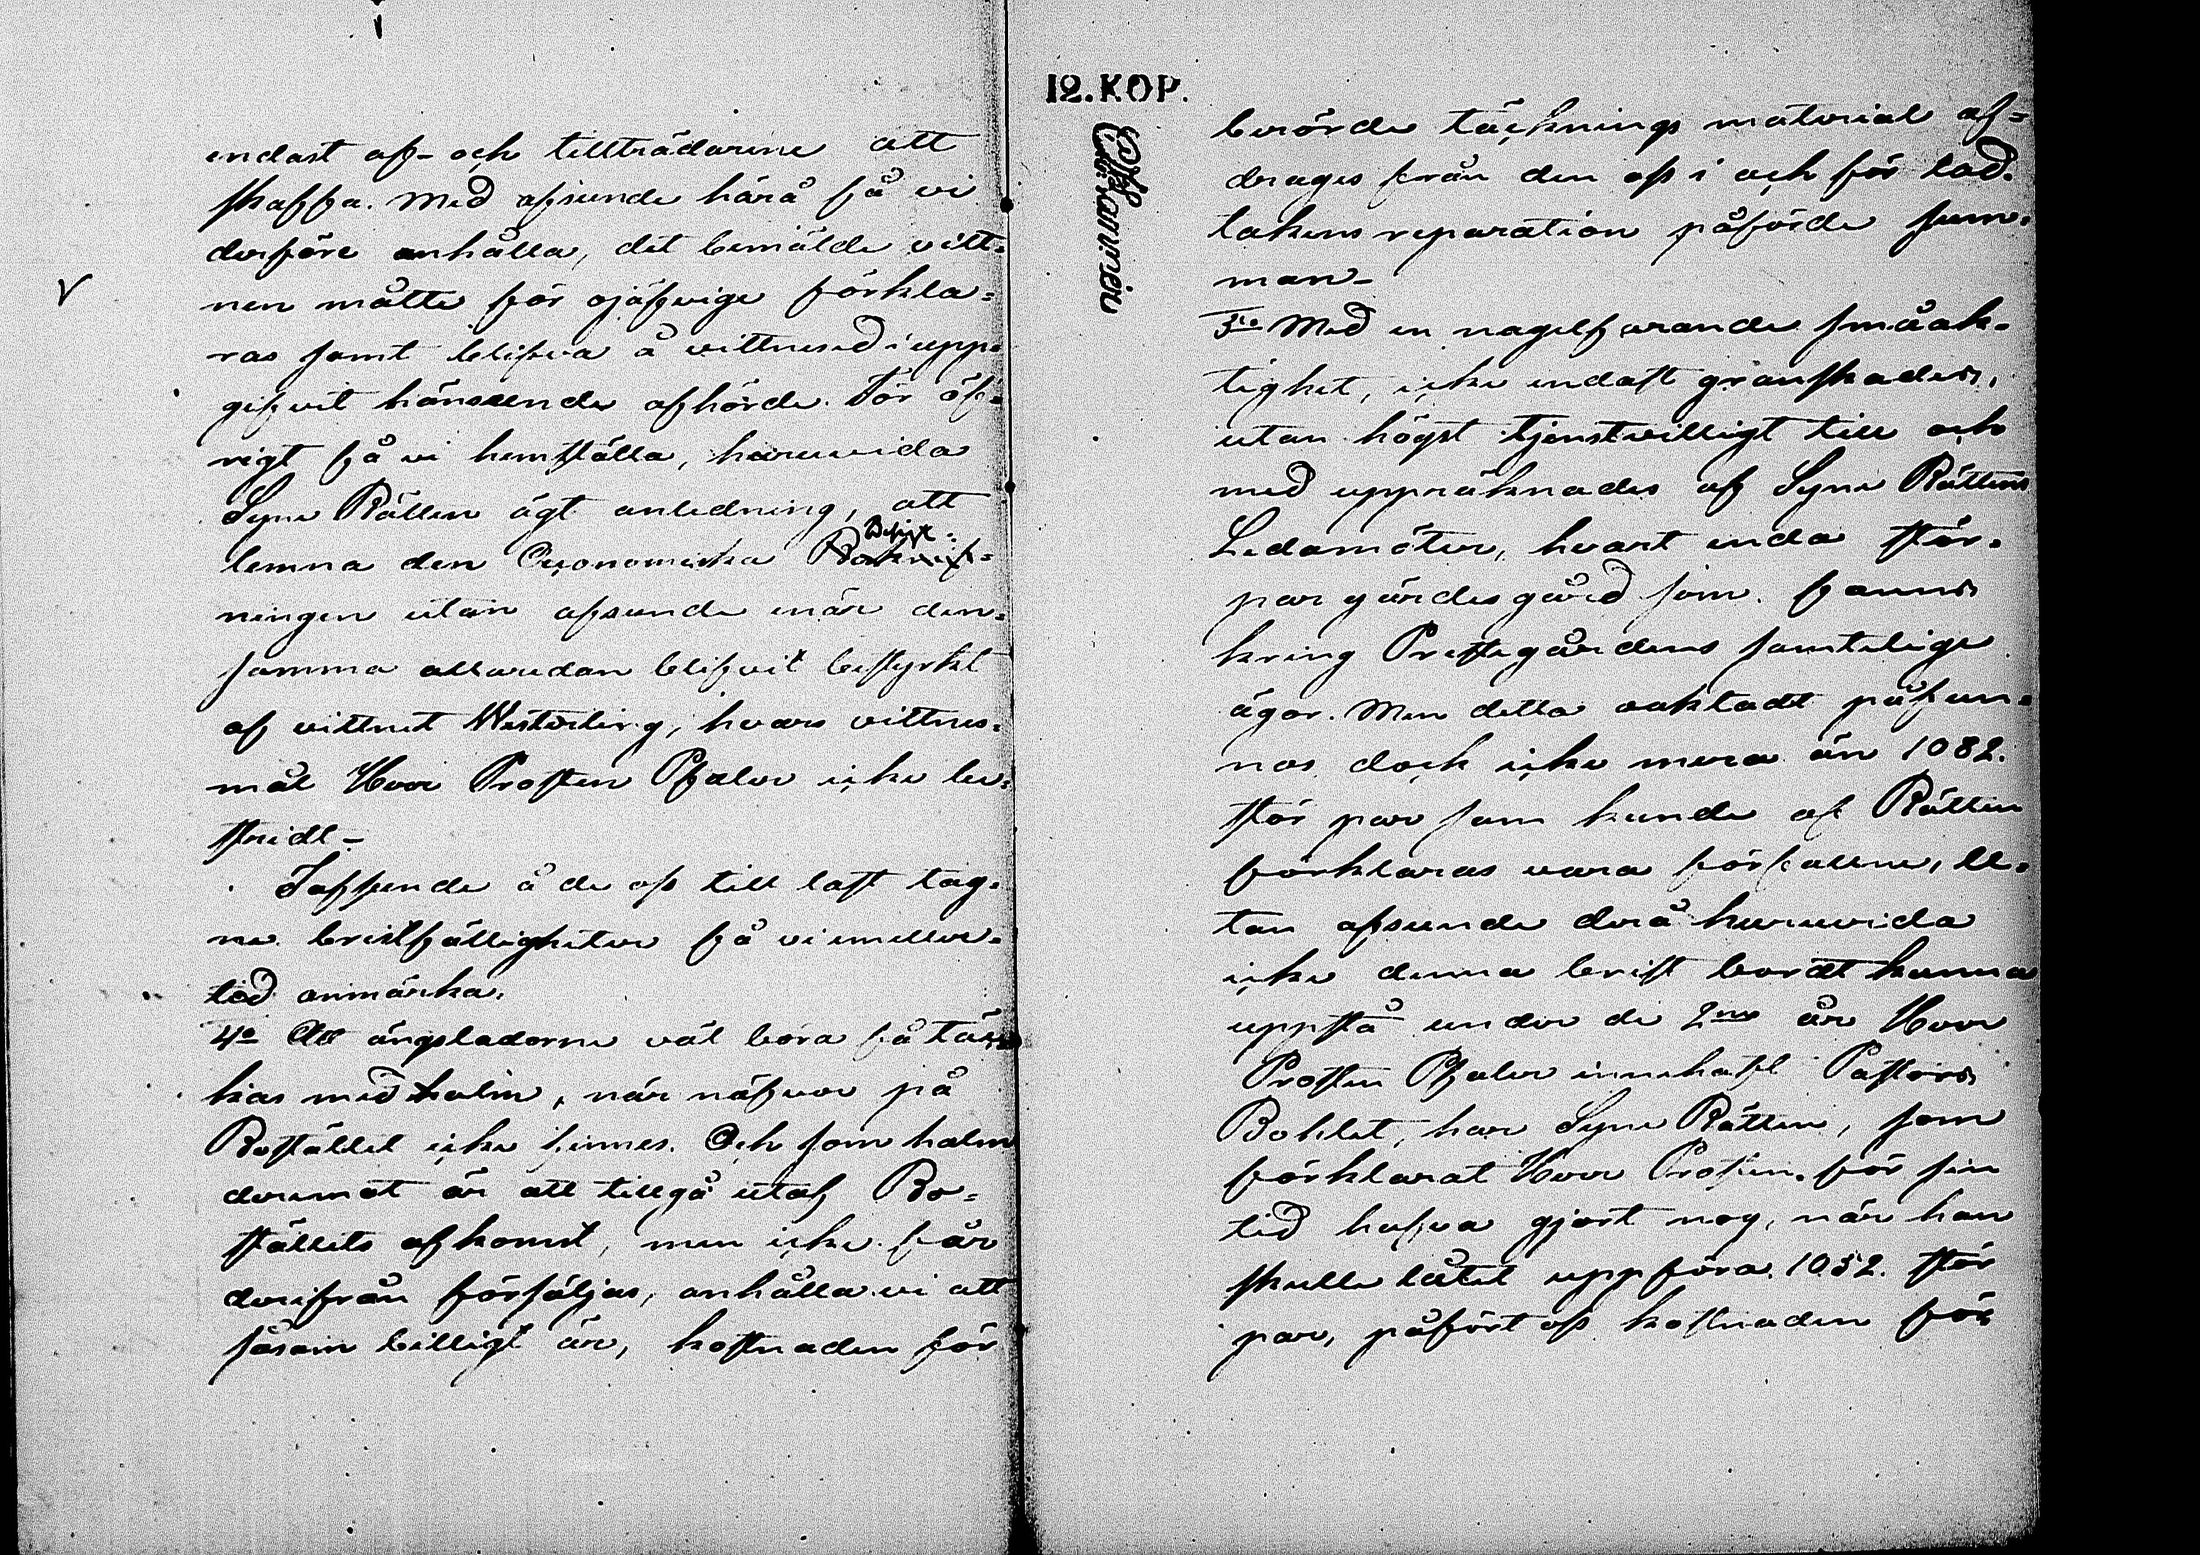 endast af- och tillträdarene att
skaffa. Med afseende härå få vi
derföre anhålla, det bemälde vitt=
nen måtte för ojäfvige förkla=
ras samt blifva å vittnesed i upp=
gifvit hänseende afhörde. För öf=
rigt få vi hemställa, huruvida
Syne Rätten ägt anledning, att
lemna den Oeconomiska Beskrif=
ningen utan afseende enär den=
samma allaredan blifvit bestyrkt
af vittnet Westerling, hvars vittnes=
mål Herr Prosten Pfaler icke be=
stridt-
I afseende å de oss till last tag=
ne bristfälligheter få vi emeller=
tid anmärka.
4o Att ängsladorne väl böra få täc=
kas med halm, när näfver på
Bostället icke finnes. Och som halm
deremot är att tillgå utaf Bo=
ställets afkomst, men icke får
derifrån försäljas, anhålla vi att
såsom billigt är, kostnaden för
12. KOP.
berörde täcknings material af=
drages från den oss i och för lad=
takens reparation påförde sum=
man-
5o Med en nagelfarande småak=
tighet, icke endast granskades,
utan högst tjenstvilligt till och
med uppräknades af Syne Rättens
Ledamöter, hvart enda stör=
par gärdesgård som fanns
kring Prestegårdens samtelige
ägor. Men detta oaktadt påfun=
nos dock icke mera än 1082.
stör par som kunde af Rätten
förklaras vara förfallne, U=
tan afseende derå huruvida
icke denna brist bordt kunna
uppstå under de 2ne år Herr
Prosten Pfaler innehaft Pastors
Bohlet, har Syne Rätten, som
förklarat Herr Prosten för sin
tid hafva gjort nog, när han
skulle låtit uppföra 1052. stör
par, påfört oss kostnaden för